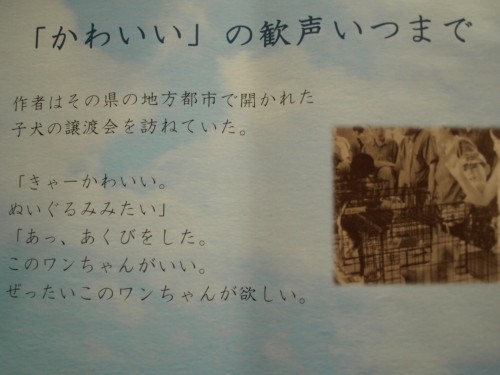 「かわいい」の歓声いつまで
作者はその県の地方都市で開かれた
子犬の譲渡会を訪ねていた。
「きゃーかわいい。
ぬいぐるみみたい」
「あっ、あくびをした。
このワンちゃんがいい。
ぜったいこのワンちゃんが欲しい。